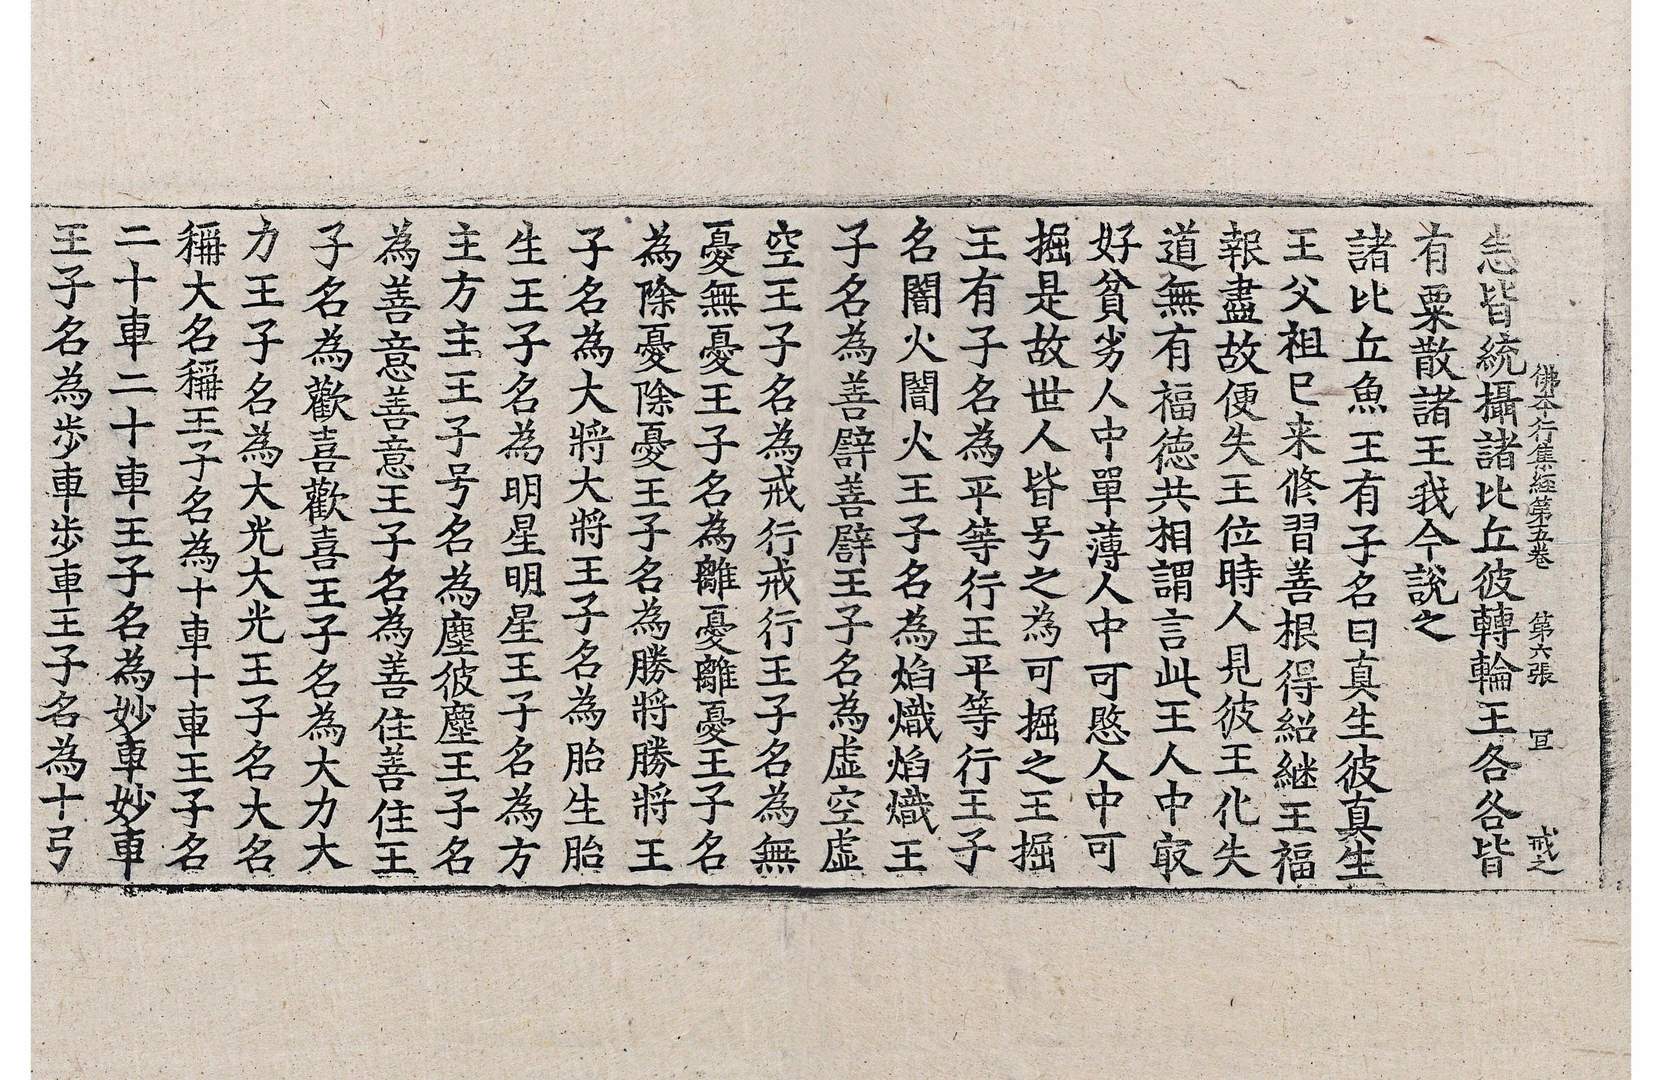 佛本行集經第五卷　第六張　冝　戒之
悉皆統攝諸比丘彼轉輪王各各皆
有粟散諸王我今說之
諸比丘魚王有子名曰真生彼真生
王父祖已来修習善根得紹継王福
報盡故便失王位時人見彼王化失
道無有福德共相謂言此王人中㝡
好貧劣人中單薄人中可愍人中可
掘是故世人皆号之為可掘之王掘
王有子名為平等行王平等行王子
名闇火闇火王子名為焰熾焰熾王
子名為善譬善譬王子名為虛空虛
空王子名為戒行戒行王子名為無
憂無憂王子名為離憂離憂王子名
為除憂除憂王子名為勝將勝將王
子名為大將大將王子名為胎生胎
生王子名為明星明星王子名為方
主方主王子号名為塵彼塵王子名
為善意善意王子名為善住善住王
子名為歡喜歡喜王子名為大力大
力王子名為大光大光王子名大名
稱大名稱王子名為十車十車王子名
二十車二十車王子名為妙車妙車
王子名為步車步車王子名為十弓